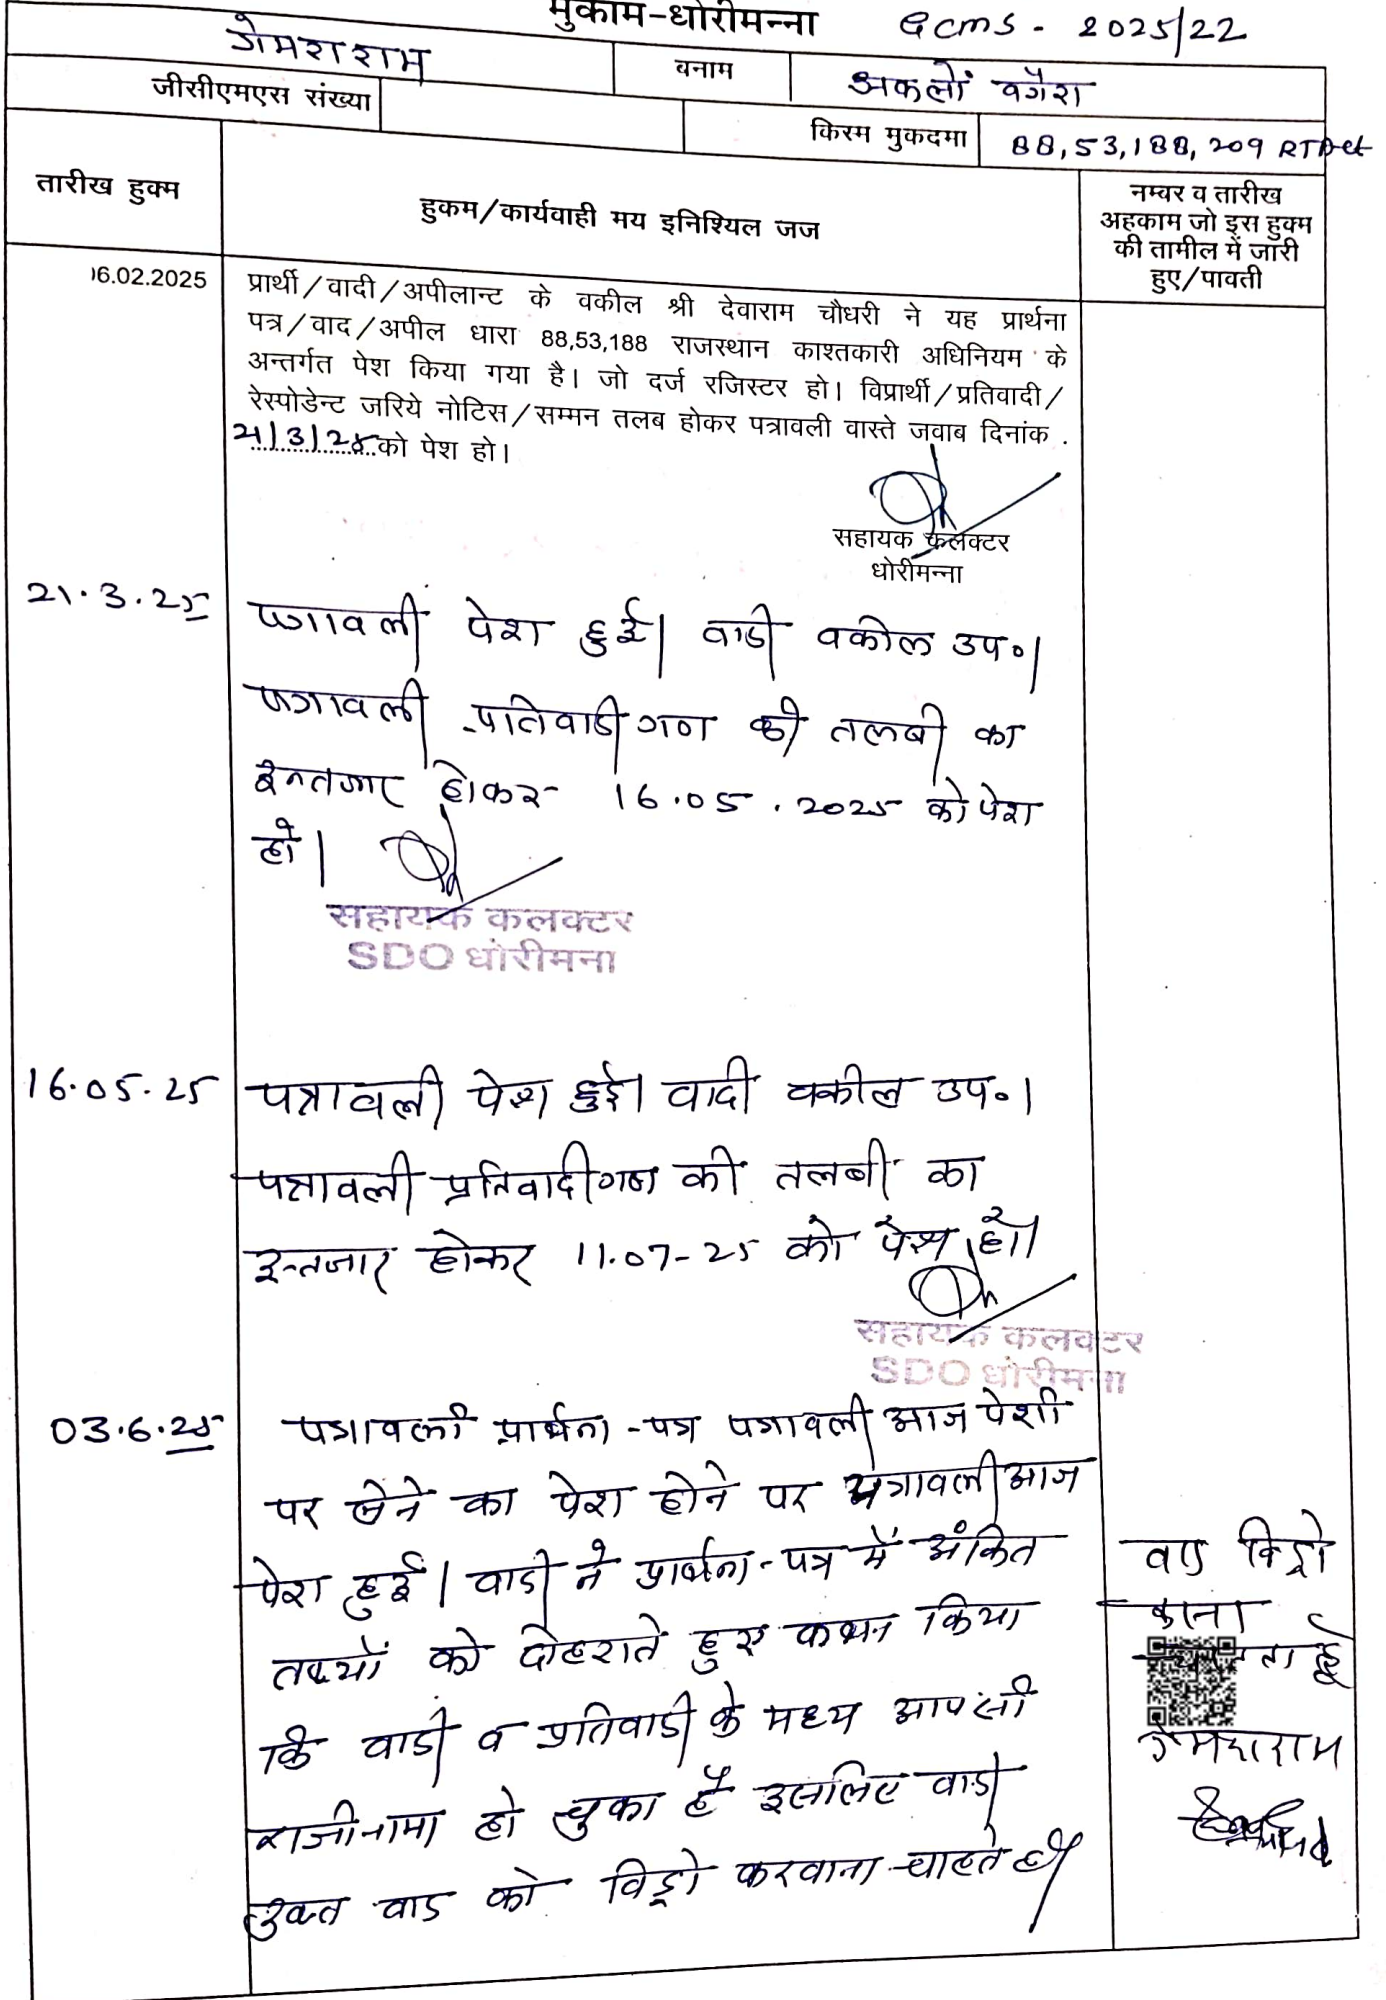 मुकाम-धोरीमन्ना GCMS - 2025/22
गेमराराम बनाम अकलों वगैरा
जीसीएमएस संख्या
किस्म मुकदमा 88,53,188,209 RTAct
तारीख हुक्म
हुकम/कार्यवाही मय इनिश्यिल जज
नम्बर व तारीख
अहकाम जो इस हुक्म
की तामील में जारी
हुए/पावती
16.02.2025
प्रार्थी/वादी/अपीलान्ट के वकील श्री देवाराम चौधरी ने यह प्रार्थना
पत्र/वाद/अपील धारा 88,53,188 राजस्थान काश्तकारी अधिनियम के
अन्तर्गत पेश किया गया है। जो दर्ज रजिस्टर हो। विप्रार्थी/प्रतिवादी/
रेस्पोडेन्ट जरिये नोटिस/सम्मन तलब होकर पत्रावली वास्ते जवाब दिनांक
21/3/25 को पेश हो।
सहायक कलक्टर
धोरीमन्ना
21.3.25 पत्रावली पेश हुई। वादी वकील उप०।
पत्रावली प्रतिवादीगण की तलबी का
इन्तजार होकर 16.05.2025 को पेश
हो।
सहायक कलक्टर
SDO धोरीमना
16.05.25 पत्रावली पेश हुई। वादी वकील उप०।
पत्रावली प्रतिवादीगण की तलबी का
इन्तजार होकर 11.07-25 को पेश हो।
सहायक कलक्टर
SDO धोरीमना
03.6.25 पत्रावली प्रार्थना-पत्र पत्रावली आज पेशी
पर लेने का पेश होने पर पत्रावली आज
पेश हुई। वादी ने प्रार्थना-पत्र में अंकित
तथ्यों को दोहराते हुए कथन किया
कि वादी व प्रतिवादी के मध्य आपसी
राजीनामा हो चुका है इसलिए वादी
उक्त वाद को विड्रो करवाना चाहते है।
वाद विड्रो
करना
गेमराराम